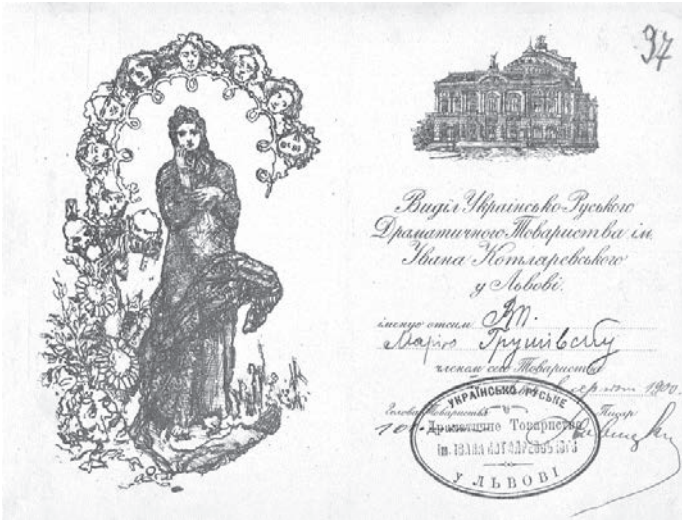 97
Виділ Українсько-Руського
Драматичного Товариства ім.
Івана Котляревського
у Львові.
іменує отсим Вп.
Марію Грушівську
членом сего Товариства
серпня 1900.
Голова Товариства Писар
УКРАЇНСЬКО РУСЬКЕ
Драматичне Товариство
ім. ІВАНА КОТЛЯРЕВСЬКОГО
У ЛЬВОВІ